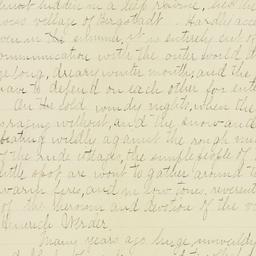 almost hidden in a deep ravine, lies the
village of Bergstadt. Hardly acce
even in the summer, it is entirely cut off
communication with the outer world d
long, dreary winter months, and the
have to depend on each other for ente
On the cold windy nights, when the
raging without, and the snow and
beating wildly against the rough
of the rude cottages, the simple people of
little spot are wont to gather around t
warm fires, and in low tones, reverent
of the heroism and devotion of the
Heinrich Werder.
Many years ago huge, unwieldy